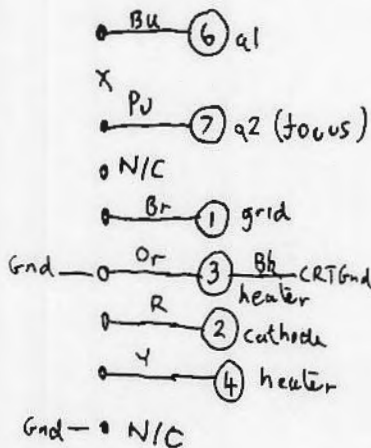 Bu 6 a1
X
Pu 7 a2 (focus)
N/C
Br 1 grid
Gnd Or 3 Bk CRTGnd
heater
R 2 cathode
Y 4 heater
Gnd N/C